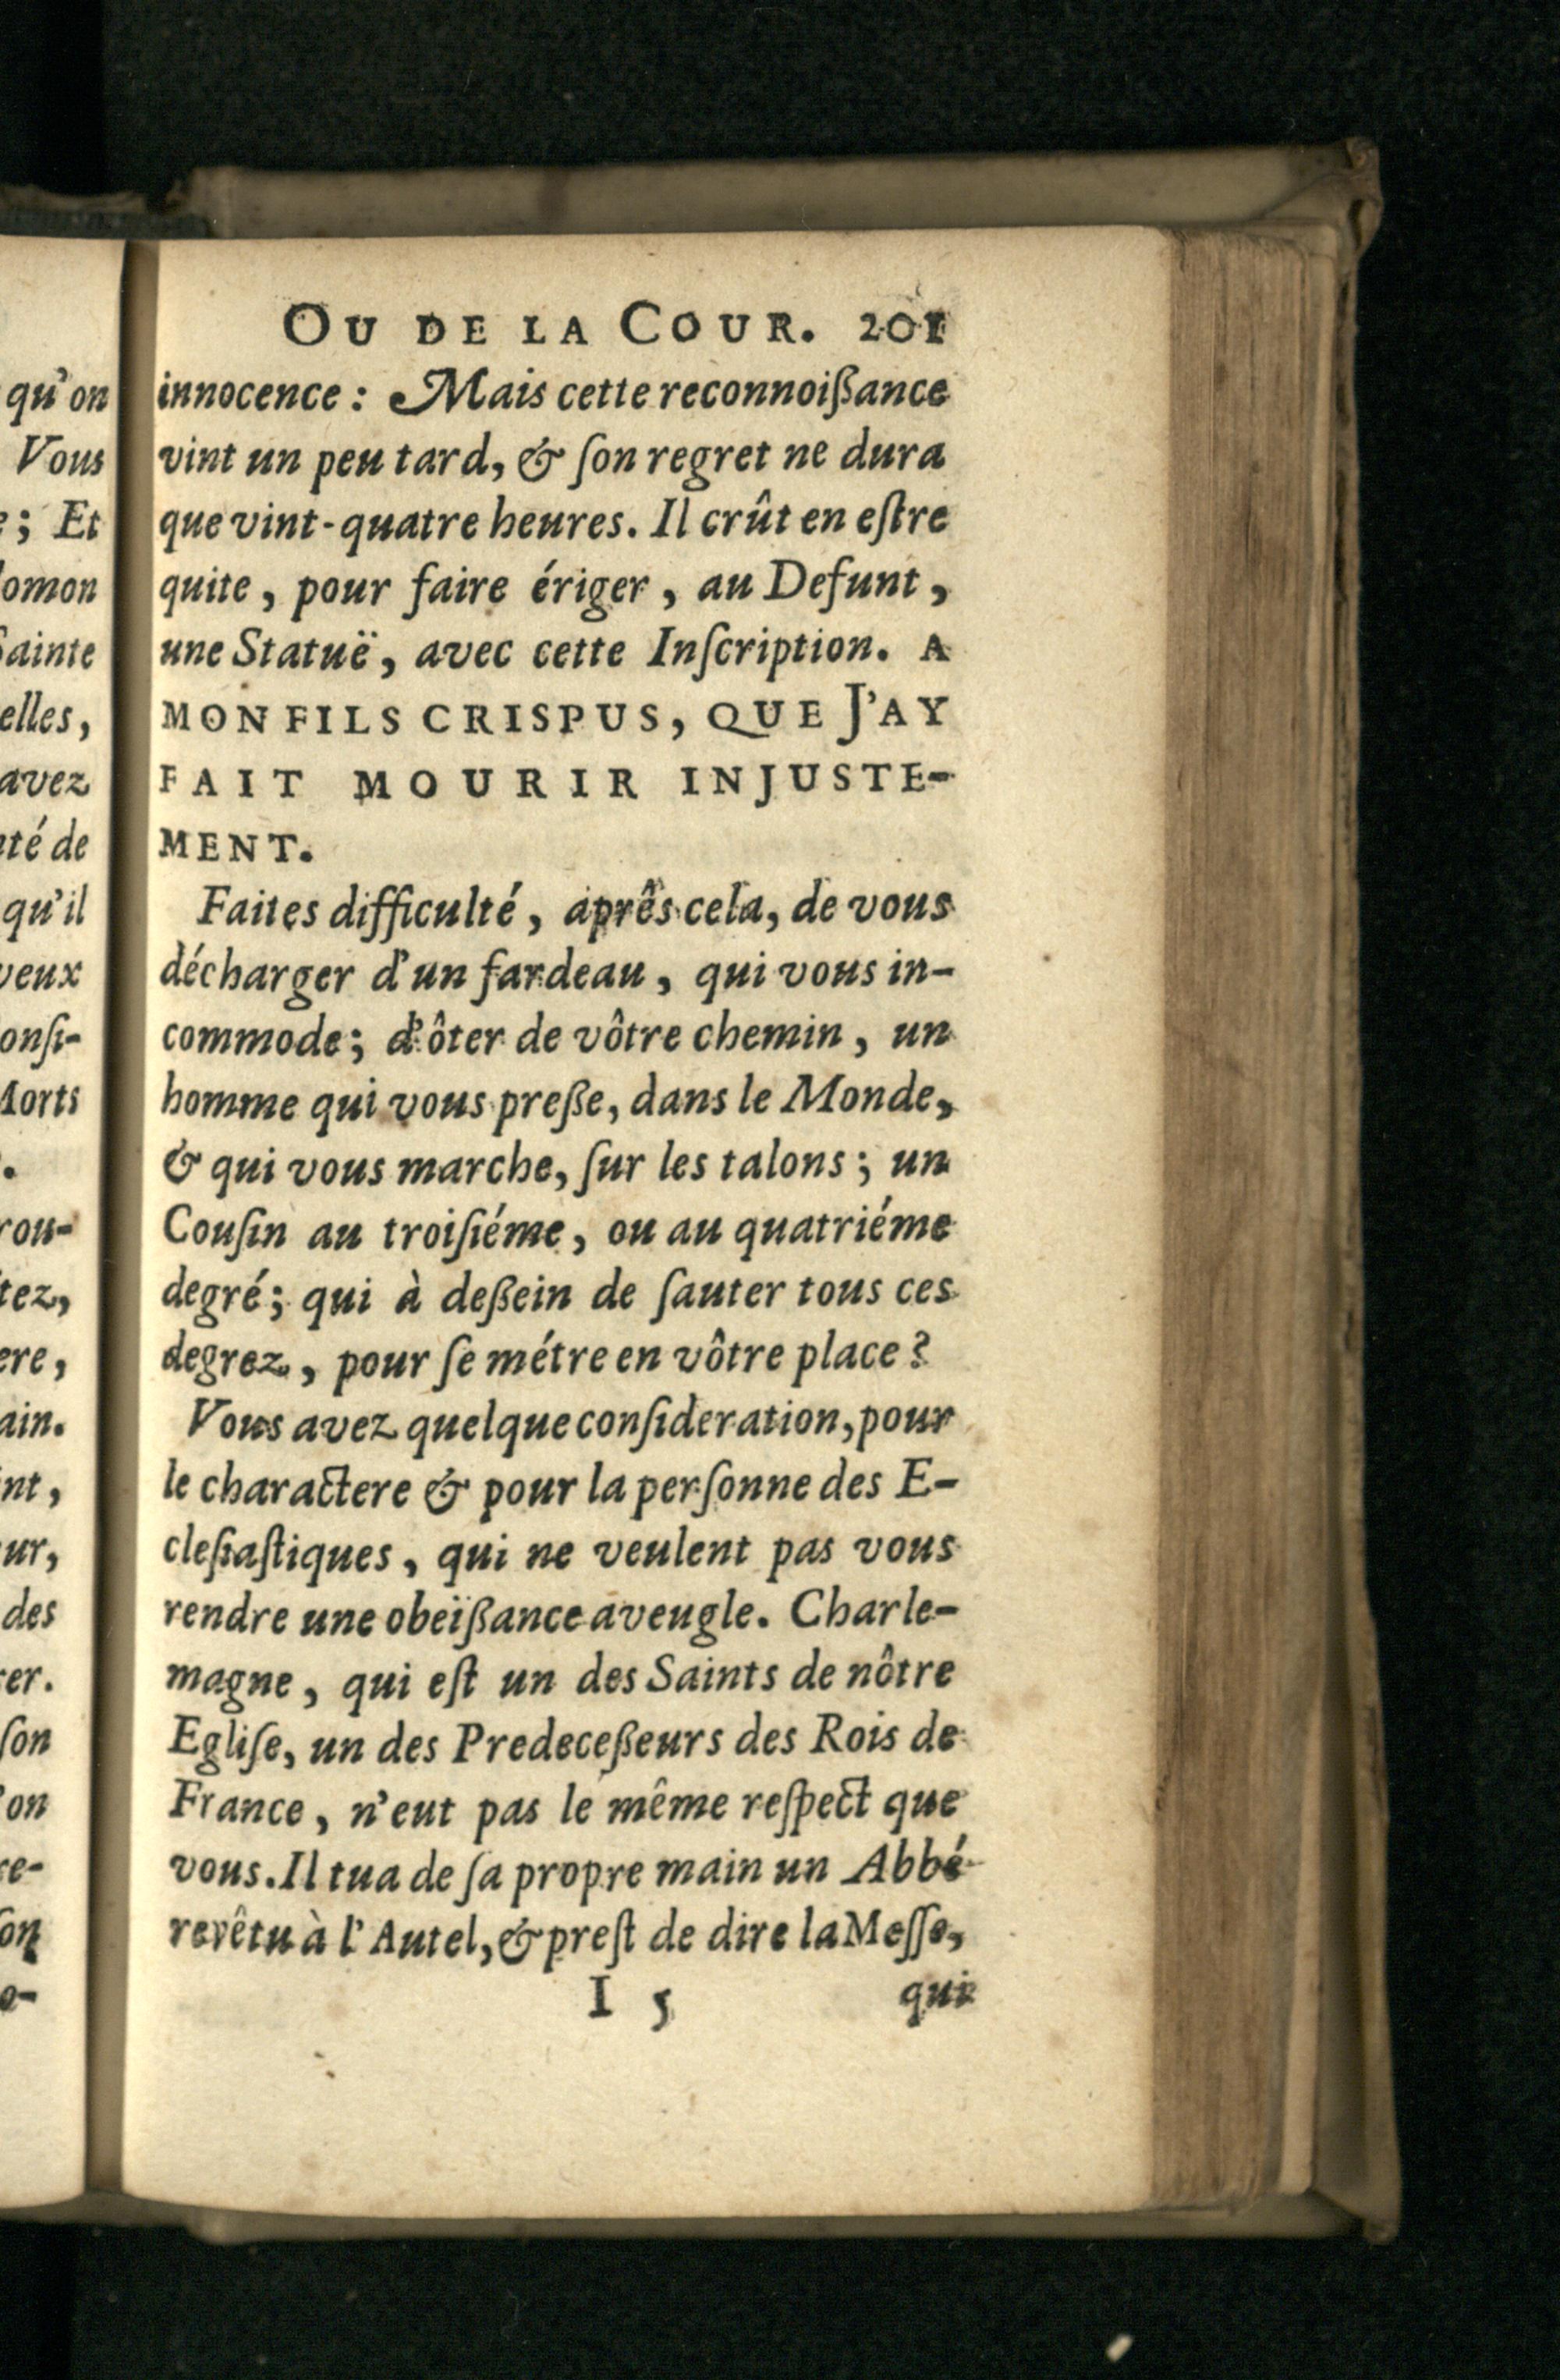 qu'on
Vous
; Et
omon
ainte
elles,
avez
té de
qu'il
veux
onſi-
Morts
.
rou-
tez,
ere,
ain.
nt,
ur,
des
er.
ſon
on
re-
on
e-
OU DE LA COUR. 201
innocence : Mais cette reconnoißance
vint un peu tard, & ſon regret ne dura
que vint-quatre heures. Il crût en eſtre
quite, pour faire ériger, au Defunt,
une Statuë, avec cette Inſcription. A
MON FILS CRISPUS, QUE J'AY
FAIT MOURIR INJUSTE-
MENT.
Faites difficulté, aprês cela, de vous
décharger d'un fardeau, qui vous in-
commode; d'ôter de vôtre chemin, un
homme qui vous preße, dans le Monde,
& qui vous marche, ſur les talons; un
Couſin au troiſiéme, ou au quatriéme
degré; qui à deßein de ſauter tous ces
degrez, pour ſe métre en vôtre place?
Vous avez quelque conſideration, pour
le charactere & pour la perſonne des E-
cleſiaſtiques, qui ne veulent pas vous
rendre une obeïßance aveugle. Charle-
magne, qui eſt un des Saints de nôtre
Egliſe, un des Predeceßeurs des Rois de
France, n'eut pas le même reſpect que
vous. Il tua de ſa propre main un Abbé
revêtu à l'Autel, & preſt de dire la Meſſe,
I 5 qui